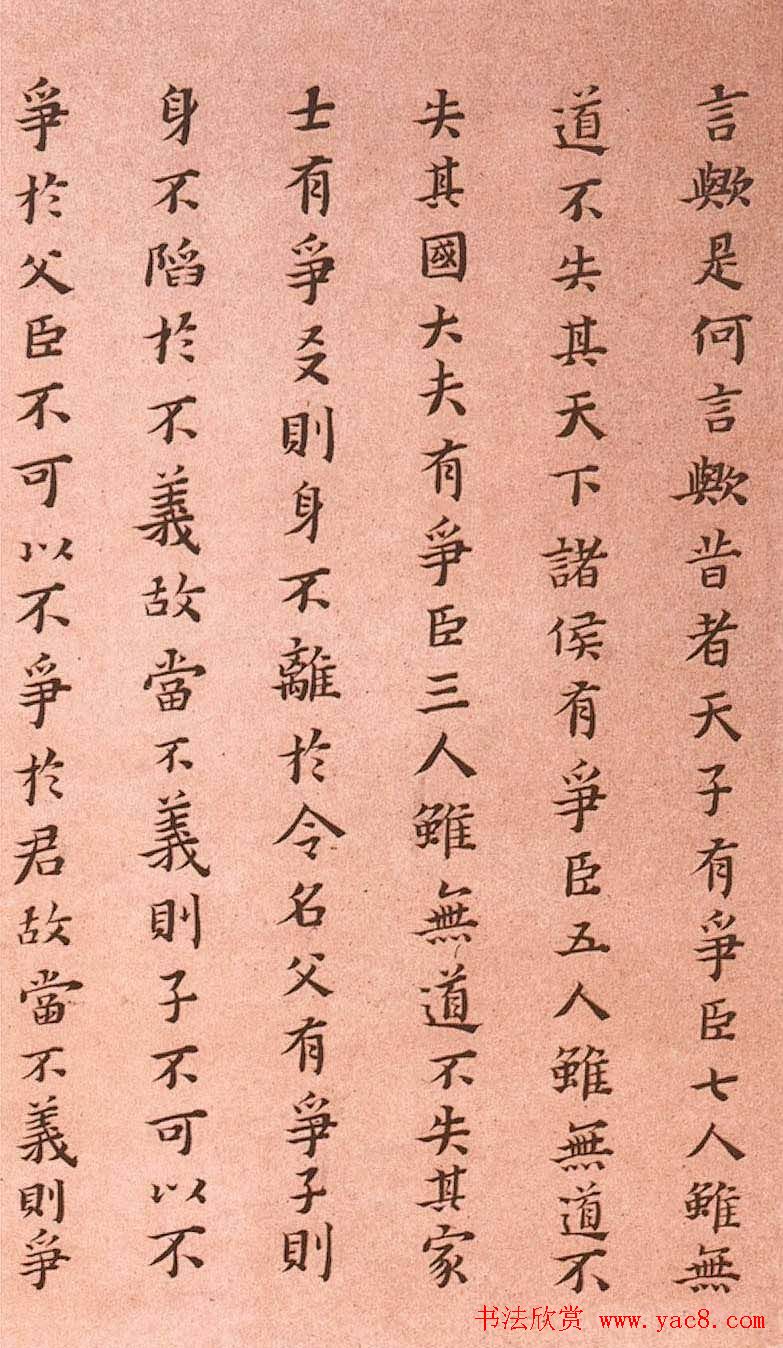 言歟是何言歟昔者天子有爭臣七人雖無
道不失其天下諸侯有爭臣五人雖無道不
失其國大夫有爭臣三人雖無道不失其家
士有爭友則身不離於令名父有爭子則
身不陷於不義故當不義則子不可以不
爭於父臣不可以不爭於君故當不義則爭
书法欣赏 www.yac8.com